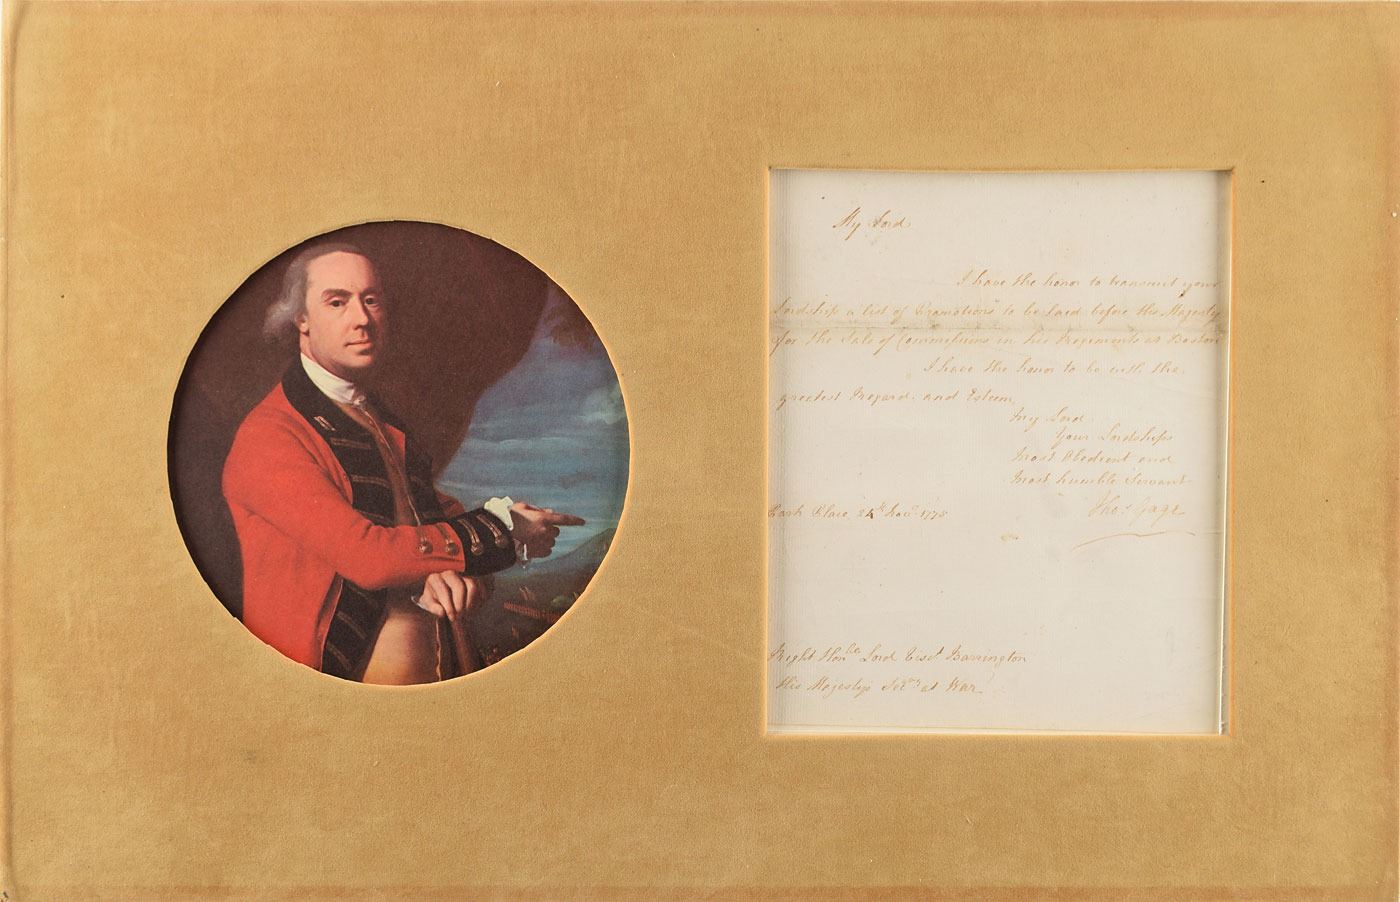 My Lord
I have the honor to transmit your
Lordship a list of Promotions to be laid before His Majesty
for the Sale of Commissions in his Regiments at Boston
I have the honor to be with the
greatest Regard and Esteem
My Lord
Your Lordships
Most Obedient and
Most humble Servant
Thos. Gage
Park Place 24th Novr. 1775
Right Honble Lord Visct Barrington
His Majestys Secry at War